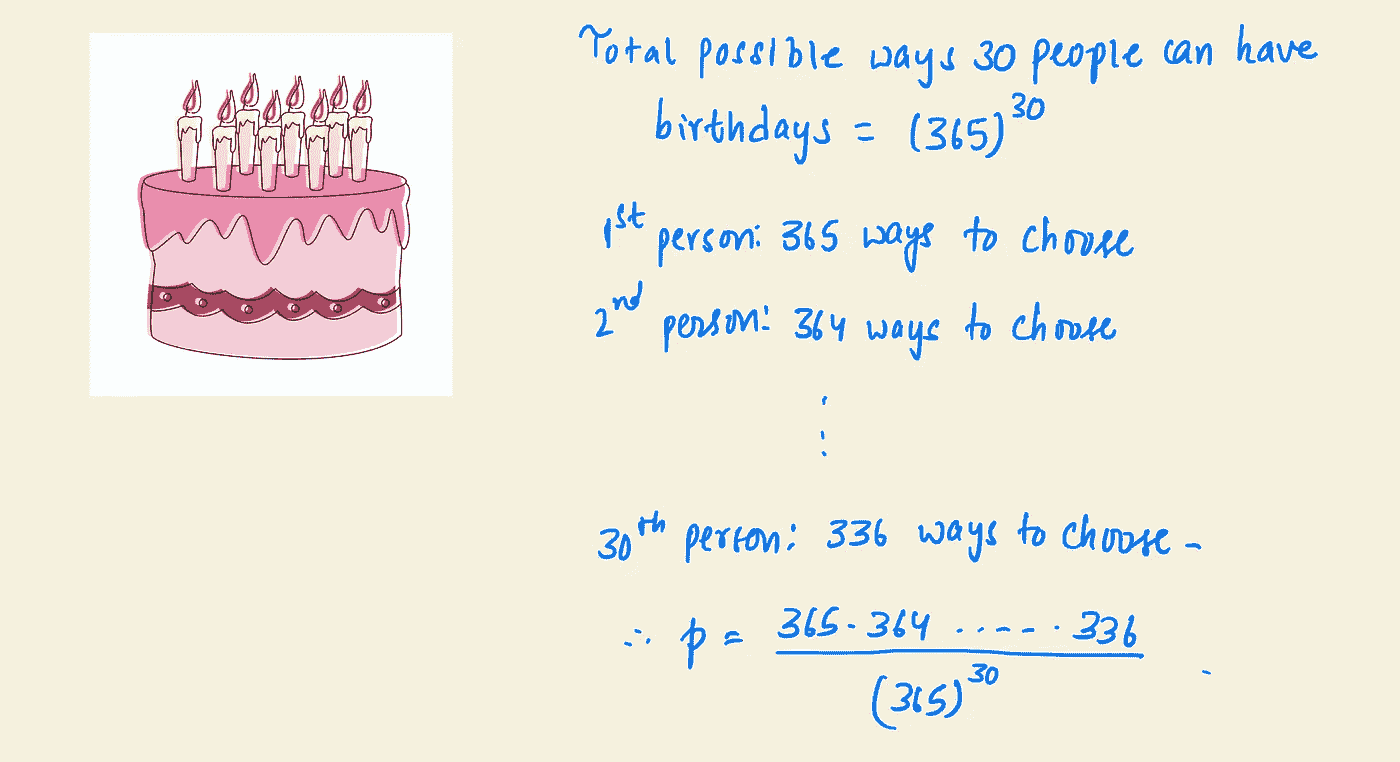 Total possible ways 30 people can have
birthdays = (365)^30
1st person: 365 ways to choose
2nd person: 364 ways to choose
⋮
30th person: 336 ways to choose -
∴ p = 365 · 364 ..---. · 336
(365)^30